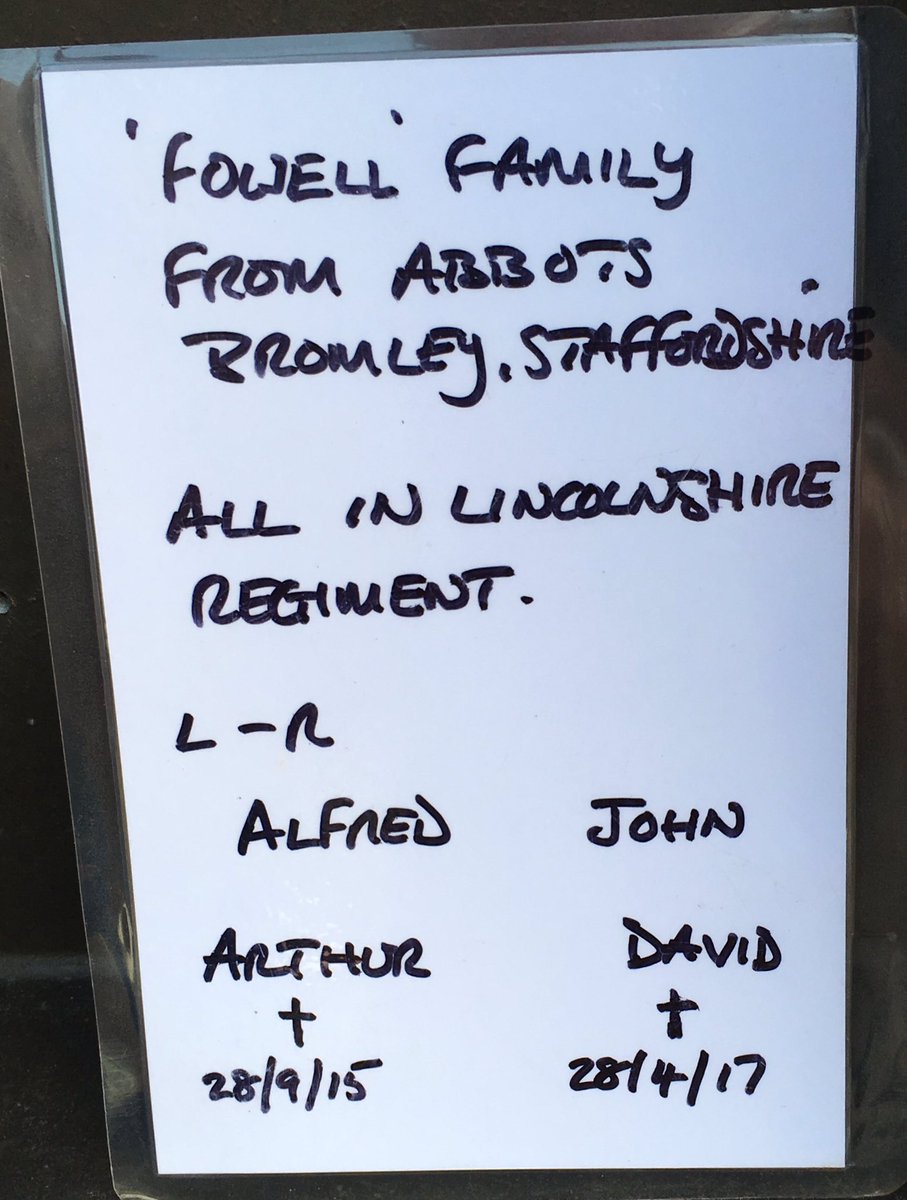 'FOWELL' FAMILY
FROM ABBOTS
BROMLEY, STAFFORDSHIRE
ALL IN LINCOLNSHIRE
REGIMENT.
L-R
ALFRED JOHN
ARTHUR DAVID
† †
28/9/15 28/4/17